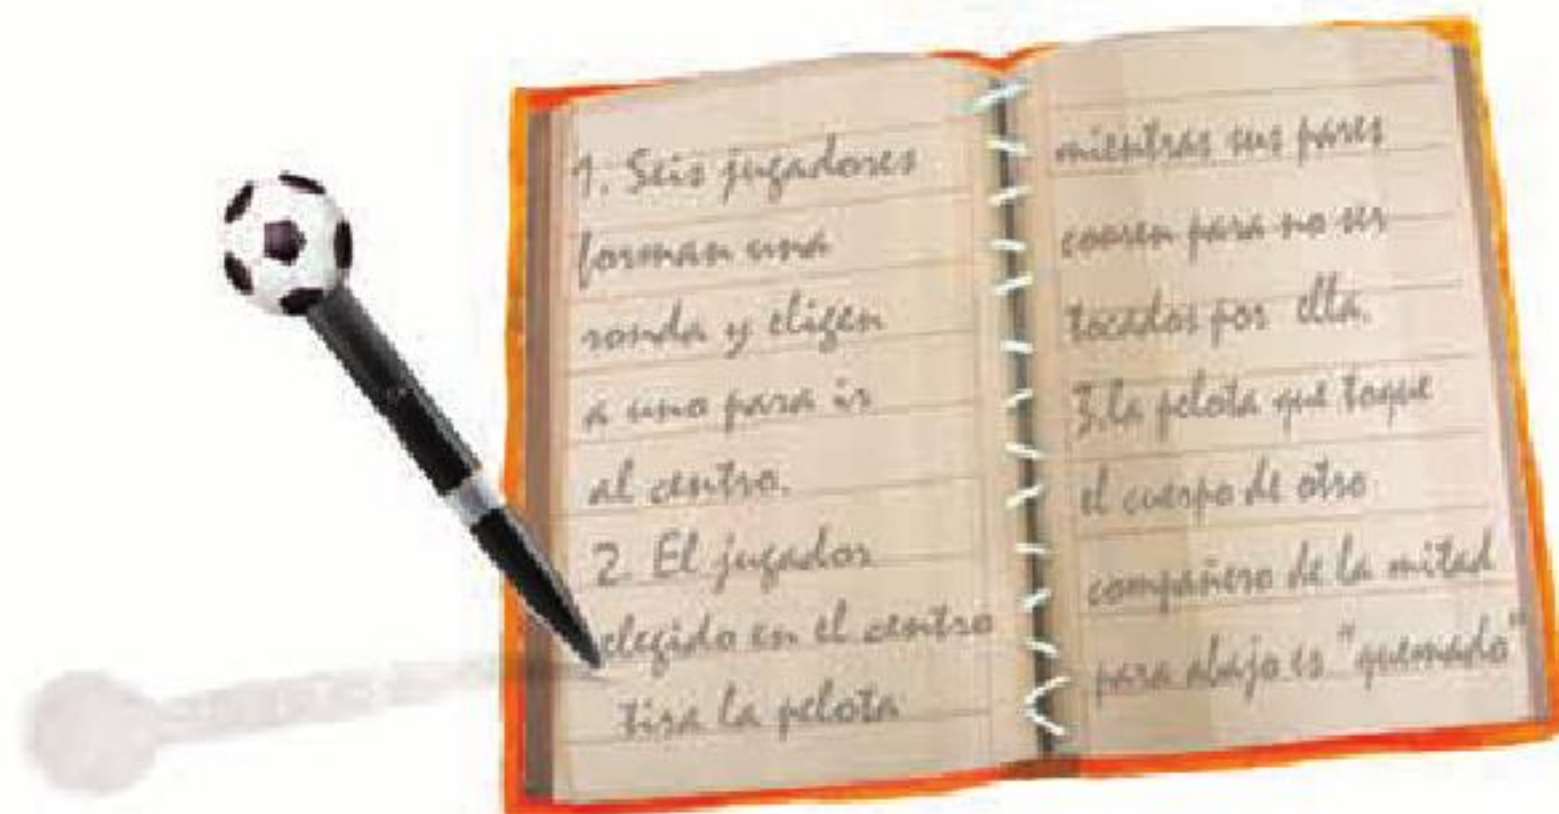 1. Seis jugadores
forman una
ronda y eligen
a uno para ir
al centro.
2. El jugador
elegido en el centro
tira la pelota
mientras sus pares
corren para no ser
tocados por ella.
3. la pelota que toque
el cuerpo de otro
compañero de la mitad
para abajo es "quemado"